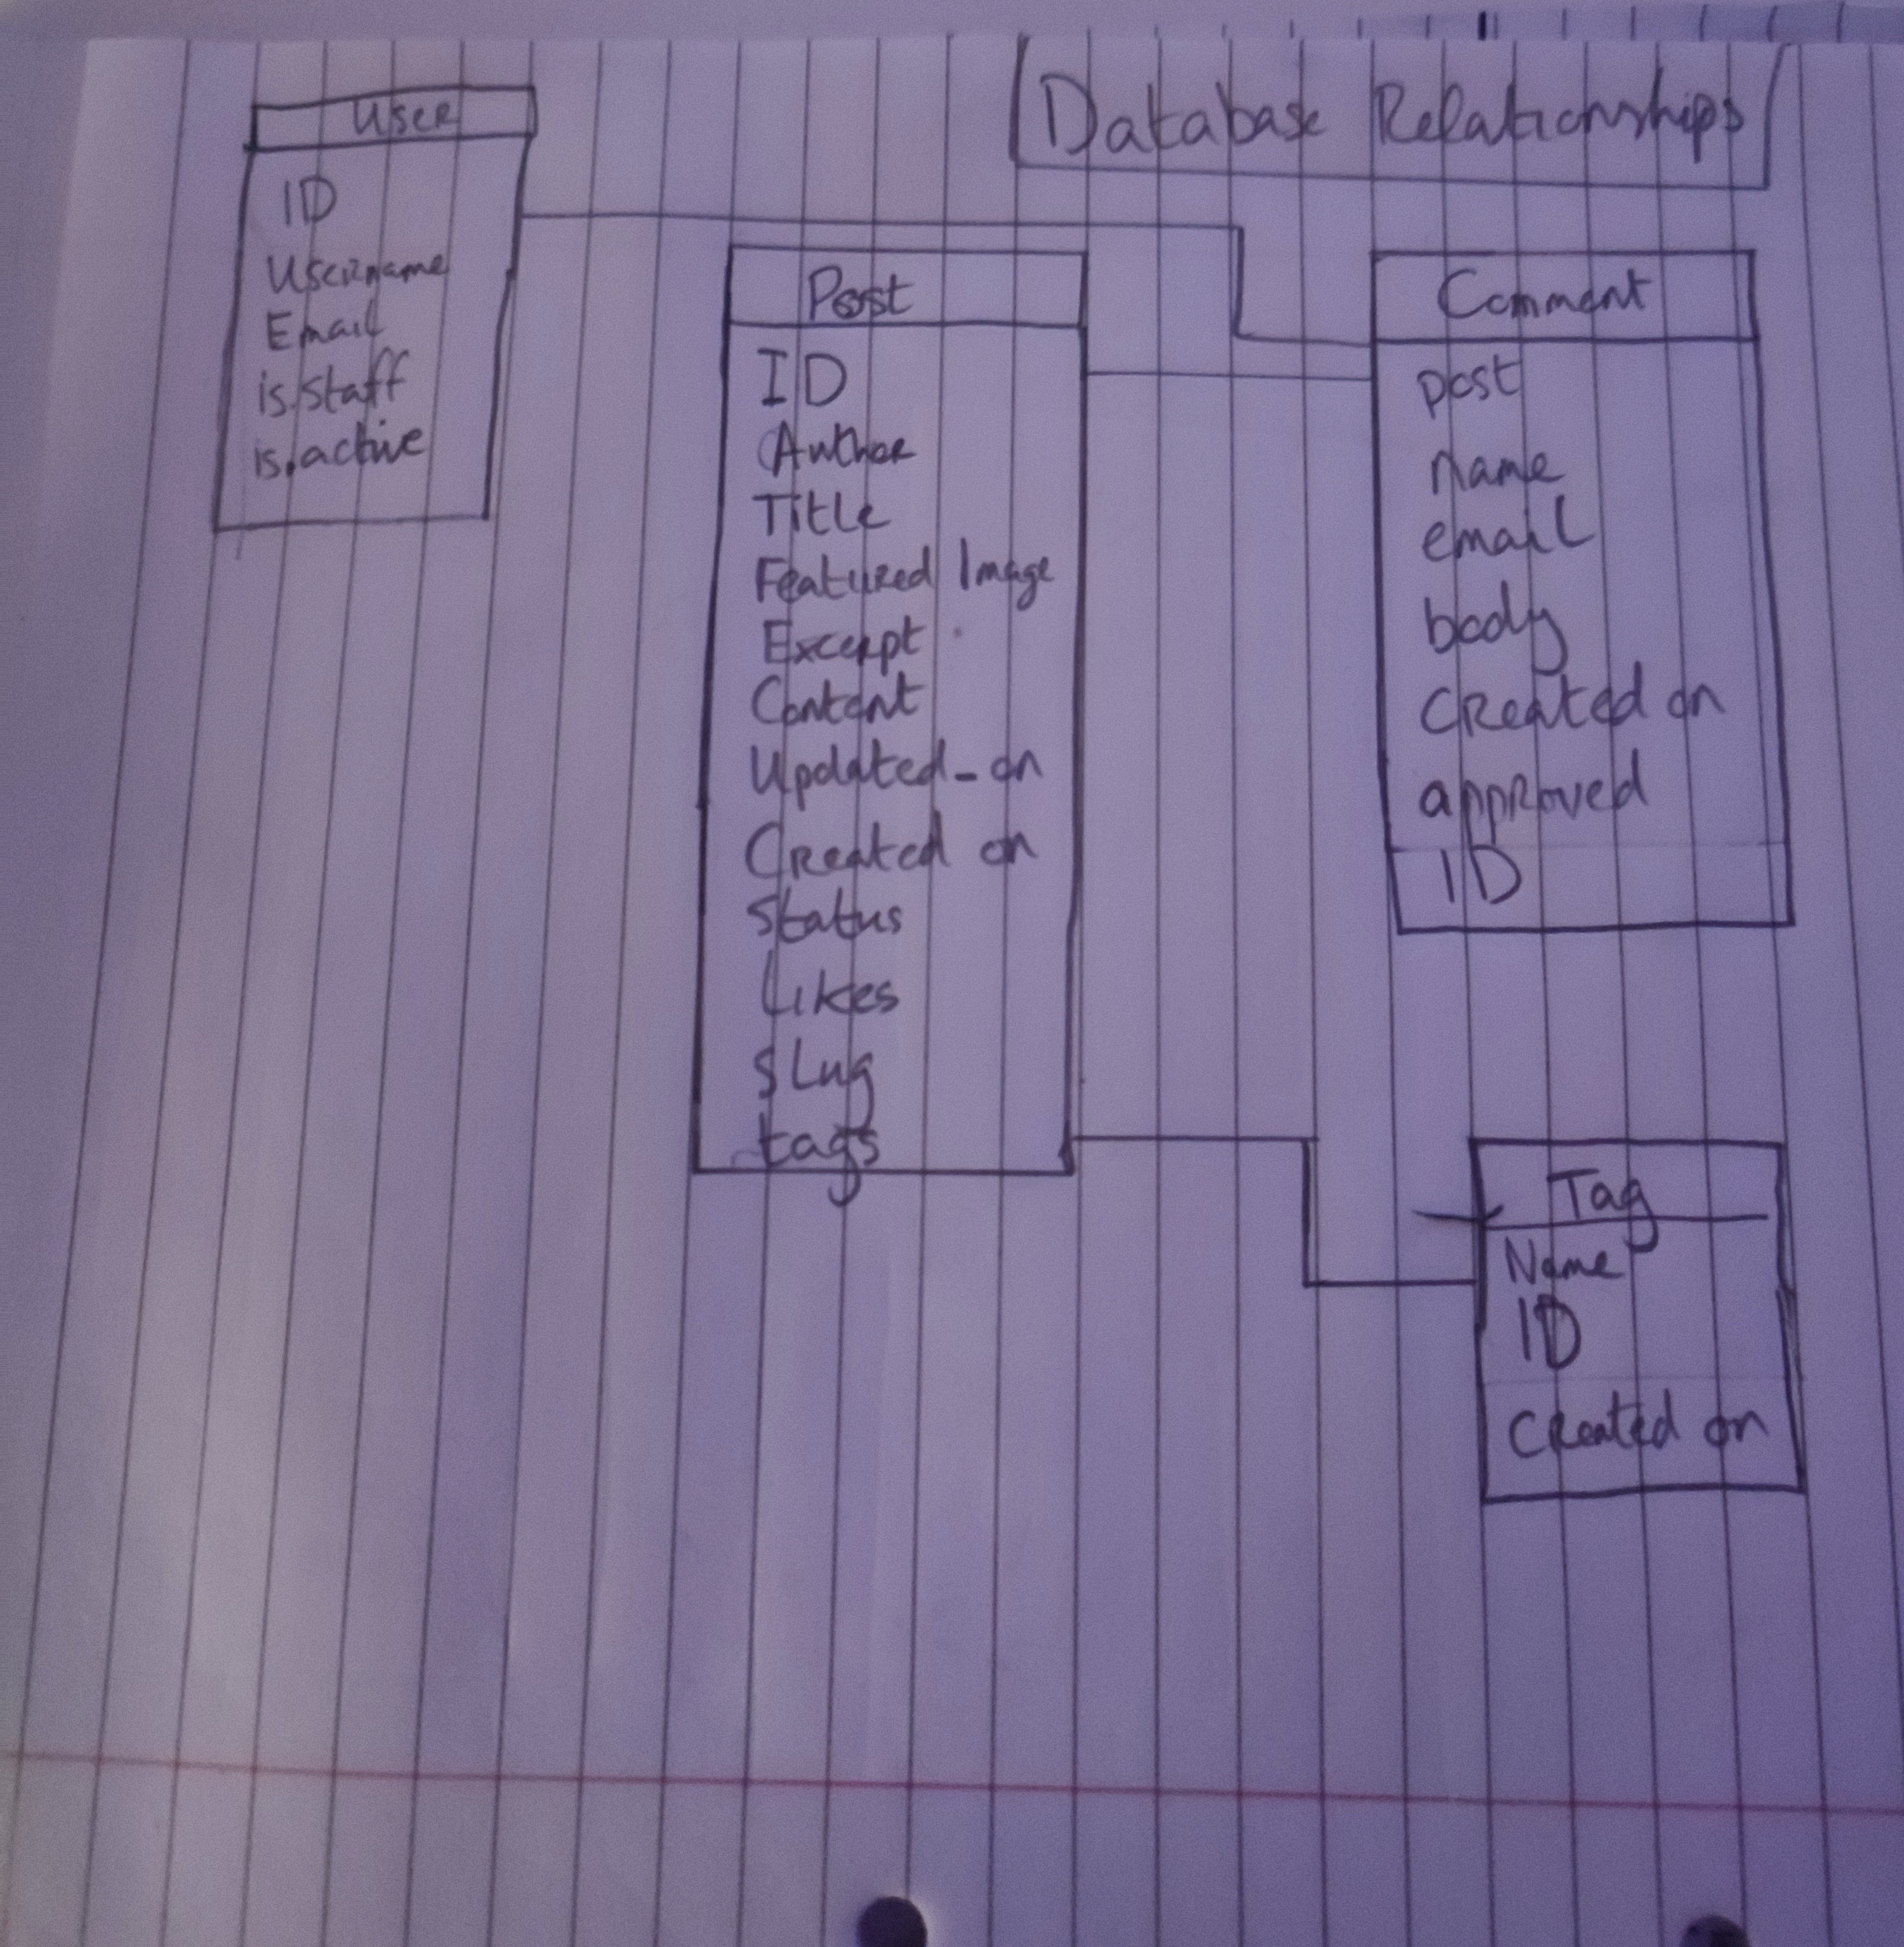 Database Relationships
User
ID
Username
Email
is.staff
is.active
Post
ID
Author
Title
Featured Image
Excerpt
Content
Updated_on
Created on
Status
Likes
sLug
tags
Comment
post
name
email
body
Created on
approved
ID
Tag
Name
ID
Created on